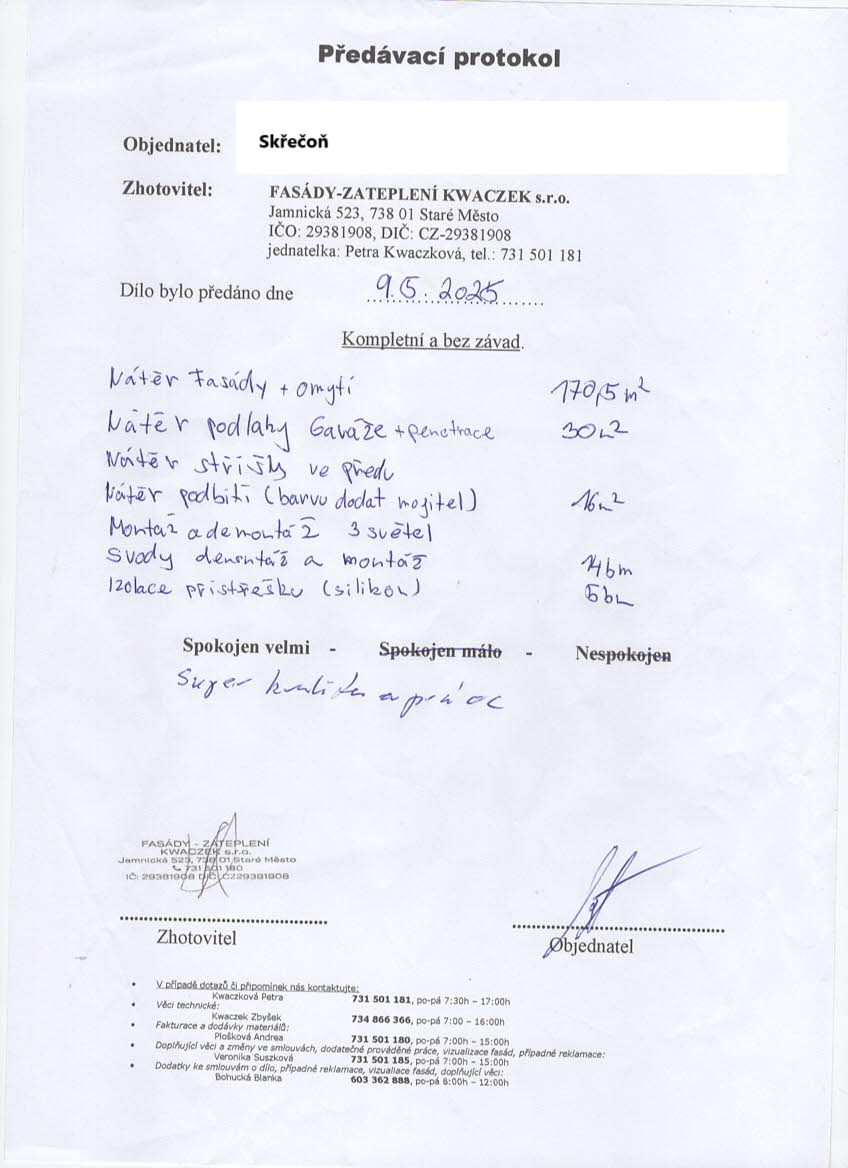 Předávací protokol
Objednatel: Skřečoň
Zhotovitel: FASÁDY-ZATEPLENÍ KWACZEK s.r.o.
Jamnická 523, 738 01 Staré Město
IČO: 29381908, DIČ: CZ-29381908
jednatelka: Petra Kwaczková, tel.: 731 501 181
Dílo bylo předáno dne 9.5.2025
Kompletní a bez závad.
Nátěr Fasády + omytí 170,5 m²
Nátěr podlahy Garáže + penetrace 30m²
Nátěr stříšky ve předu
Nátěr podbití (barvu dodat majitel) 16m²
Montáž a demontáž 3 světel
Svody demontáž a montáž 14bm
Izolace přístřešku (silikon) 5bm
Spokojen velmi - Spokojen málo - Nespokojen
Super kvalita a práce
FASÁDY - ZATEPLENÍ
KWACZEK s.r.o.
Jamnická 523, 738 01 Staré Město
731 501 180
IČ: 29381908 DIČ: CZ29381908
Zhotovitel
Objednatel
• V případě dotazů či připomínek nás kontaktujte:
Kwaczková Petra 731 501 181, po-pá 7:30h – 17:00h
• Věci technické:
Kwaczek Zbyšek 734 866 366, po-pá 7:00 – 16:00h
• Fakturace a dodávky materiálů:
Plošková Andrea 731 501 180, po-pá 7:00h – 15:00h
• Doplňující věci a změny ve smlouvách, dodatečné prováděné práce, vizualizace fasád, případné reklamace:
Veronika Suszková 731 501 185, po-pá 7:00h – 15:00h
• Dodatky ke smlouvám o dílo, případné reklamace, vizualiace fasád, doplňující věci:
Bohucká Blanka 603 362 888, po-pá 8:00h – 12:00h